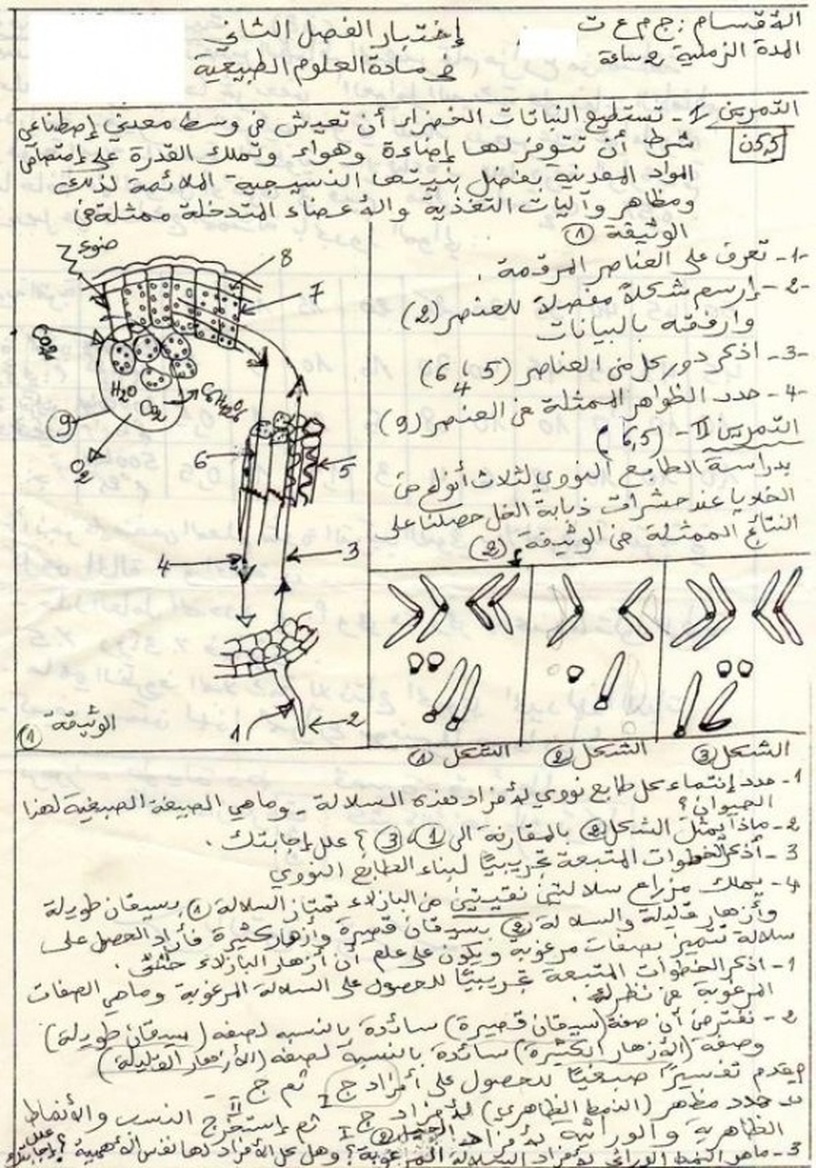 الأقسام : ج م ع ت
المدة الزمنية 2 ساعة
إختبار الفصل الثاني
في مادة العلوم الطبيعية
التمرين I - تستطيع النباتات الخضراء أن تعيش في وسط معدني إصطناعي
5,5 ن
شرط أن تتوفر لها إضاءة وهواء وتملك القدرة على إمتصاص
المواد المعدنية بفضل بنيتها النسيجية الملائمة لذلك
ومظاهر وآليات التغذية والأعضاء المتدخلة ممثلة في
الوثيقة 1
1- تعرف على العناصر المرقمة .
2- إرسم شكلاً مفصلاً للعنصر (2)
وارفقه بالبيانات
3- اذكر دور كل من العناصر (4, 5, 6)
4- حدد الظواهر الممثلة في العنصر (9)
التمرين II - (6,5)
بدراسة الطابع النووي لثلاث أنواع من
الخلايا عند حشرات ذبابة الخل حصلنا على
النتائج الممثلة في الوثيقة (2)
ضوء
8
7
CO2
H2O
CO2
C6H12O6
9
O2
6
5
4
3
1
2
الوثيقة 1
الشكل 1
الشكل 2
الشكل 3
1- حدد إنتماء كل طابع نووي لأفراد هذه السلالة - وماهي الصيغة الصبغية لهذا
الحيوان ؟
2- ماذا يمثل الشكل 2 بالمقارنة الى 1 و 3 ؟ علل إجابتك .
3 - أذكر الخطوات المتبعة تجريبيًا لبناء الطابع النووي
4- يملك مزارع سلالتين نقيتين من البازلاء تمتاز السلالة 1 بسيقان طويلة
وأزهار قليلة والسلالة 2 بسيقان قصيرة وأزهار كثيرة فأراد الحصول على
سلالة تتميز بصفات مرغوبة ويكون على علم أن أزهار البازلاء خنثى .
1- اذكر الخطوات المتبعة تجريبيًا للحصول على السلالة المرغوبة وماهي الصفات
المرغوبة في نظرك .
2- نفترض أن صفة (سيقان قصيرة) سائدة بالنسبة لصفة (سيقان طويلة)
وصفة (الأزهار الكثيرة) سائدة بالنسبة لصفة (الأزهار القليلة)
قدم تفسيرًا صبغيًا للحصول على أفراد ج I ثم ج II -
حدد مظهر (النمط الظاهري) لأفراد ج I ثم إستخرج النسب والأنماط
الظاهرية والوراثية لأفراد الجيل 2
3- ماهو النمط الوراثي لأفراد السلالة المرغوبة ؟ وهل كل الأفراد لها نفس الأهمية ؟ علل إجابتك